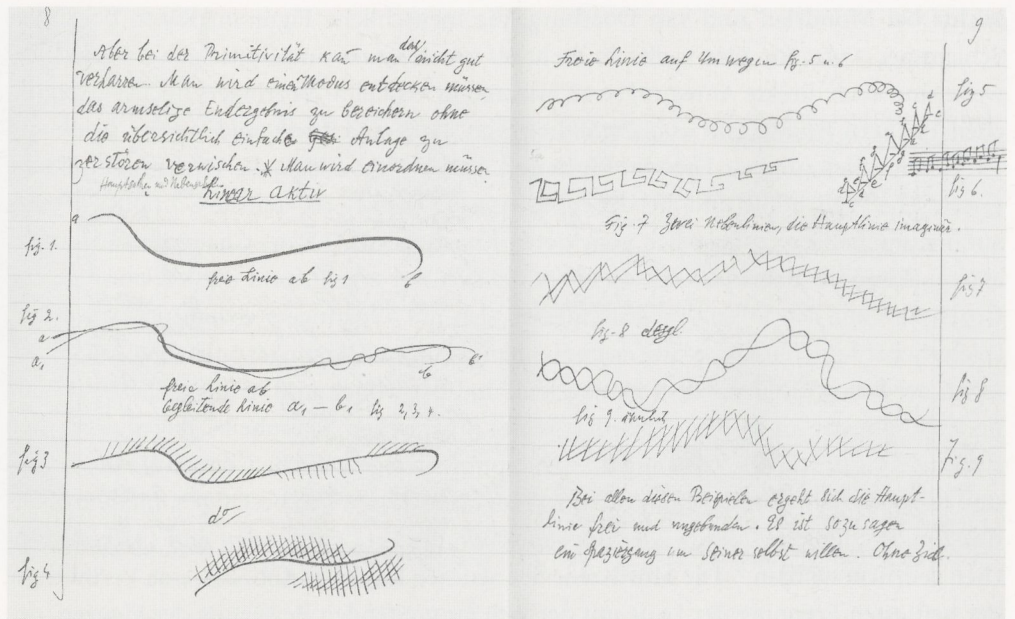 8
Aber bei der Primitivität kann man das nicht gut
verharren. Man wird einen Modus entdecken müssen
das armselige Endergebnis zu bereichern ohne
die übersichtlich einfache Anlage zu
zerstören verwischen. Man wird einordnen müssen
Hauptsachen und Nebensachen
Linear aktiv
a
fig. 1.
freie Linie ab fig 1
b
fig 2.
a
a₁
b
b¹
freie Linie ab
begleitende Linie a₁ – b₁ fig 2, 3, 4.
fig 3
dº
fig 4
9
Freie Linie auf Umwegen fig. 5 u. 6
fig 5
fig 6.
Fig. 7 Zwei Nebenlinien, die Hauptlinie imaginär.
fig 7
fig. 8 desgl.
fig 8
fig 9.
Fig. 9
Bei allen diesen Beispielen ergeht sich die Haupt-
linie frei und ungebunden. Es ist sozusagen
ein Spaziergang um seiner selbst willen. Ohne Ziel.